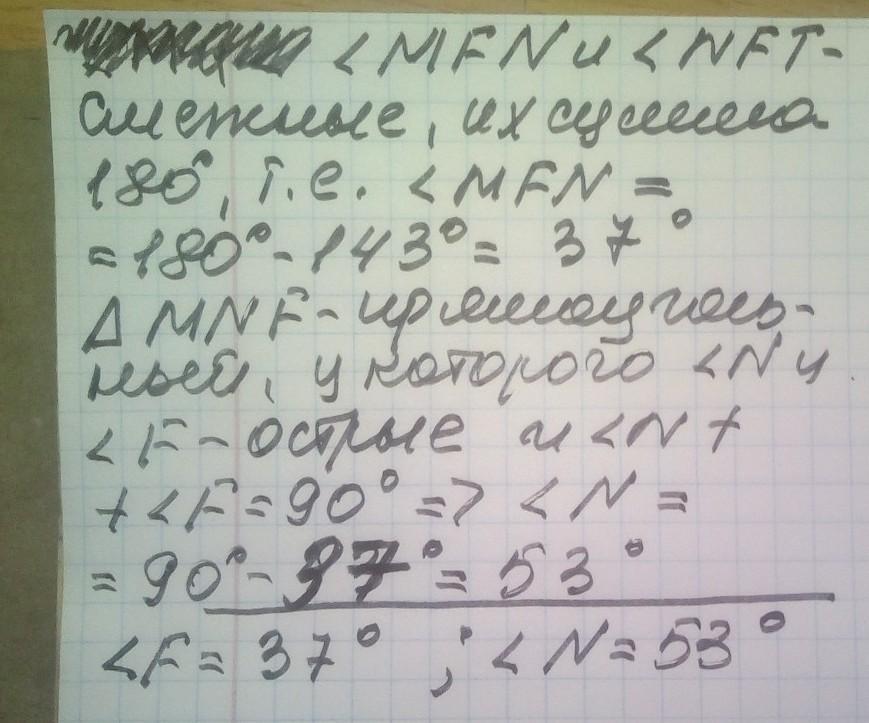 <MFN и <NFT-
смежные, их сумма
180°, т.е. <MFN =
=180°-143°= 37°
Δ MNF-прямоуголь-
ный, у которого <N и
<F-острые и <N +
+<F=90°=> <N =
=90°-37°=53°
<F=37° ; <N=53°